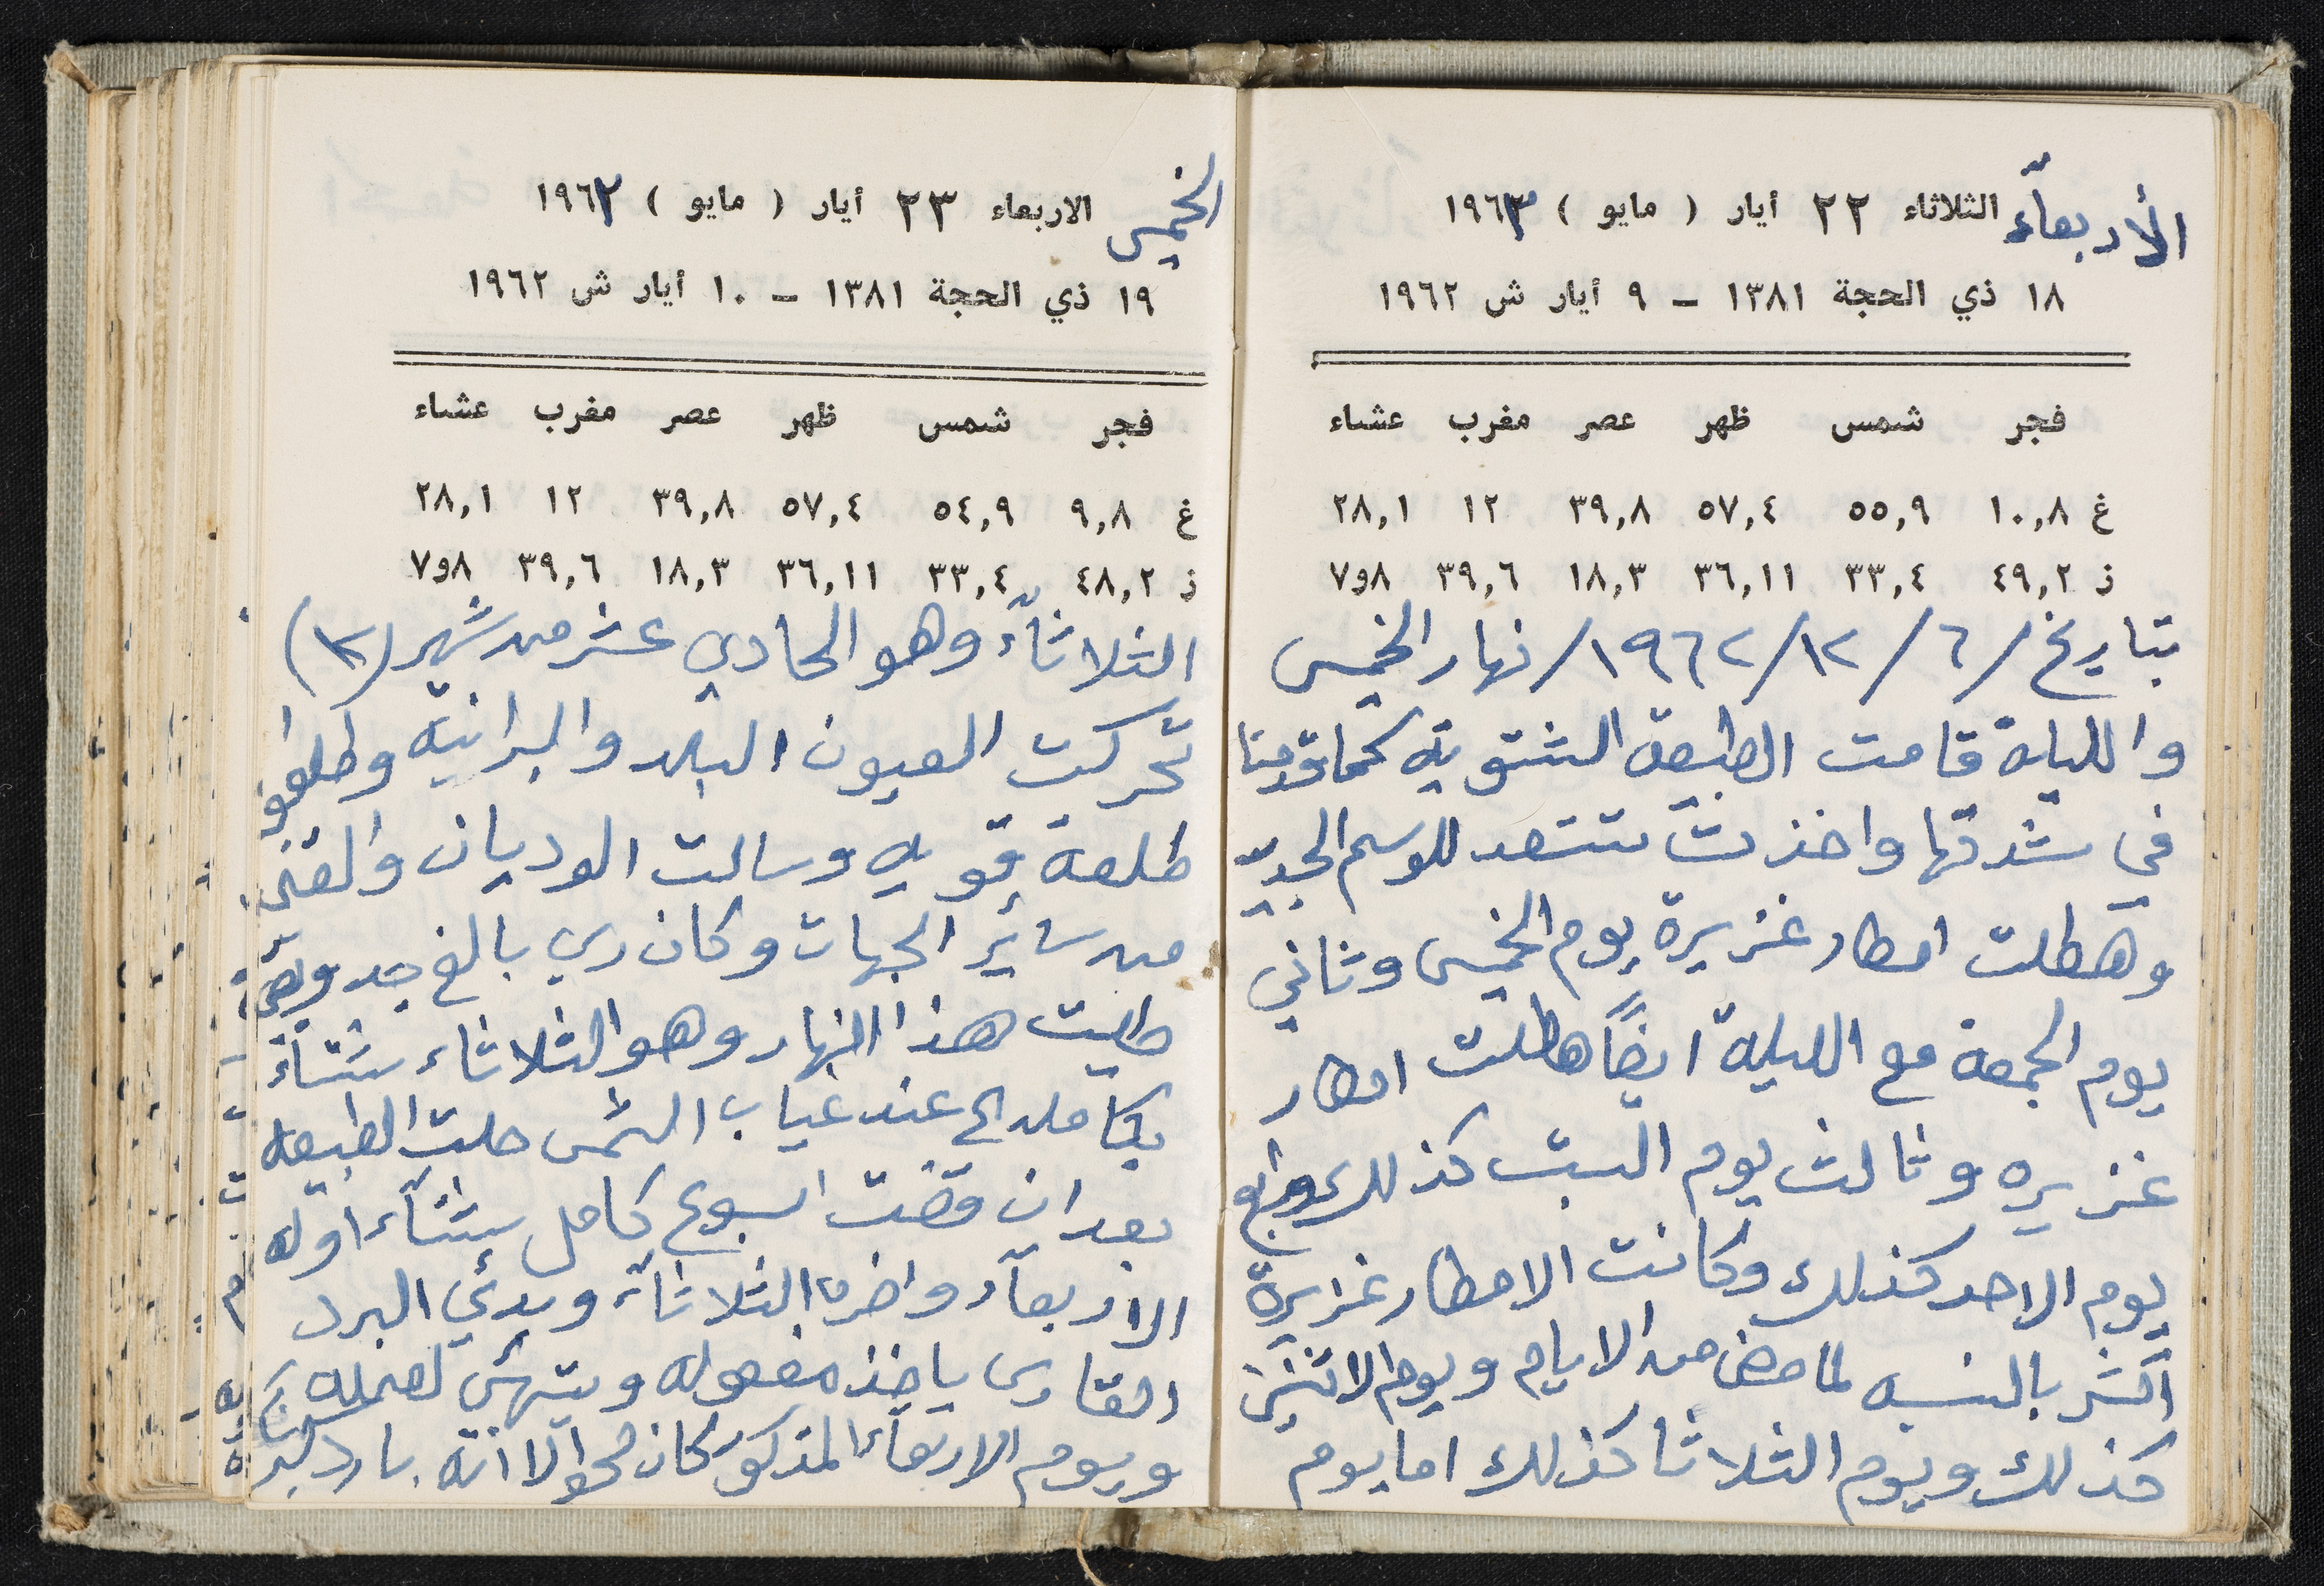 الأربعاء الثلاثاء ٢٢ أيار ( مايو ) ١٩٦٣
١٨ ذي الحجة ١٣٨١ – ٩ أيار ش ١٩٦٢
فجر شمس ظهر عصر مغرب عشاء
غ ١٠,٨ ٥٥,٩ ٥٧,٤ ٣٩,٨ ١٢ ٢٨,١
ز ٤٩,٢ ٣٣,٤ ٣٦,١١ ١٨,٣ ٣٩,٦ ٨و٧
بتاريخ /٦ /١٢/ ١٩٦٢/ نهار الخميس
والليلة قامت الطبيعة الشتوية كما قدمنا
في شدتها واخذت تستعد للوسم الجديد
وهطلت امطار غزيرة يوم الخميس وثاني
يوم الجمعة مع الليلة ايضاً هطلت امطار
غزيره وثالث يوم السبت كذلك ورابع
يوم الاحد كذلك وكانت الامطار غزايرة
اكثر بالنسبه لما مضى من الايام ويوم الاثنين
كذلك ويوم الثلاثا كذلك اما يوم
الخميس الاربعاء ٢٣ أيار ( مايو ) ١٩٦٢
١٩ ذي الحجة ١٣٨١ – ١٠ أيار ش ١٩٦٢
فجر شمس ظهر عصر مغرب عشاء
غ ٩,٨ ٥٤,٩ ٥٧,٤ ٣٩,٨ ١٢ ٢٨,١
ز ٤٨,٢ ٣٣,٤ ٣٦,١١ ١٨,٣ ٣٩,٦ ٨و٧
الثلاثاء وهو الحادي عشر من شهر (١٢)
تحركت العيون البلد والبرانيه وطلعو
طلعة قويه وسالت الوديان والقني
من سائر الجهات وكان ري بالغ جد وبقي
طيلت هذا النهار وهو الثلاثاء شتاء
بكامله الى عند غياب الشمس حلت الطبيعه
بعد ان قضت اسبوع كامل شتاء اوله
الاربعاء واخره الثلاثاء وبدئ البرد
القارس ياخذ مفعوله ويتهئ لعمله
ويوم الاربعاء المذكور كان صحو الا انه بارد